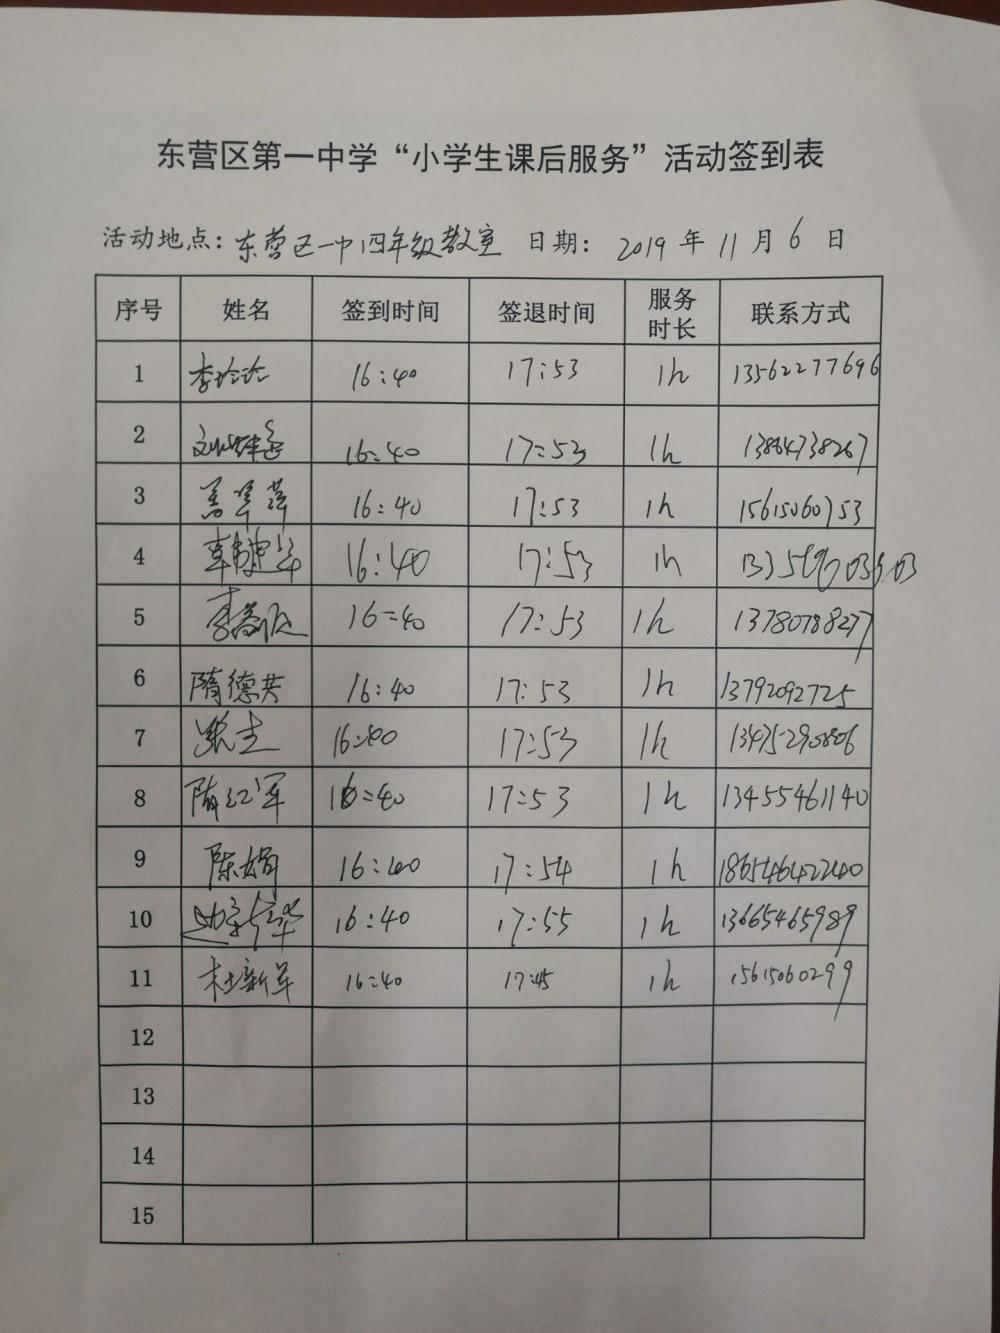 东营区第一中学“小学生课后服务”活动签到表
活动地点: 东营区一中四年级教室 日期: 2019年11月6日
序号 姓名 签到时间 签退时间 服务时长 联系方式
1 李玲玲 16:40 17:53 1h 13562277696
2 16:40 17:53 1h 13864738267
3 16:40 17:53 1h 15615060753
4 韩建军 16:40 17:53 1h
5 16=40 17:53 1h 13780788277
6 隋德共 16:40 17:53 1h 13792092725
7 张志 16:40 17:53 1h 13475290806
8 隋红军 16:40 17:53 1h 13455461140
9 陈娟 16:40 17:54 1h 18654642240
10 16:40 17:55 1h 13665465989
11 杜新军 16:40 17:45 1h 15615060299
12
13
14
15